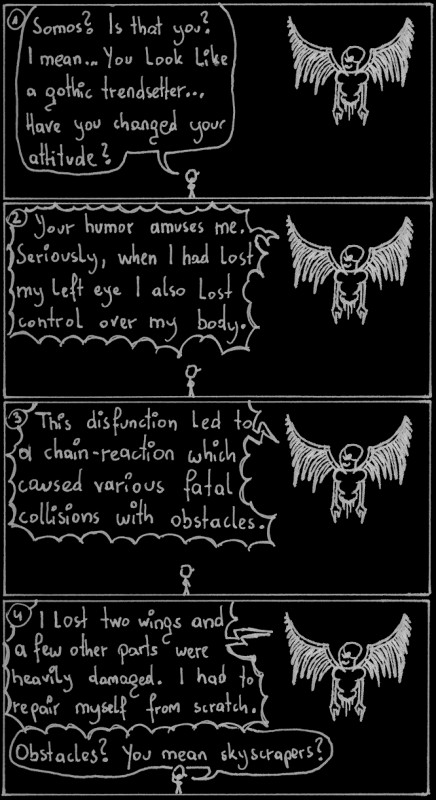 1
Somos? Is that you?
I mean... You Look Like
a gothic trendsetter...
Have you changed your
attitude?
2
Your humor amuses me.
Seriously, when I had Lost
my Left eye I also Lost
control over my body.
3
This disfunction Led to
a chain-reaction which
caused various fatal
collisions with obstacles.
4
I Lost two wings and
a few other parts were
heavily damaged. I had to
repair myself from scratch.
Obstacles? You mean skyscrapers?